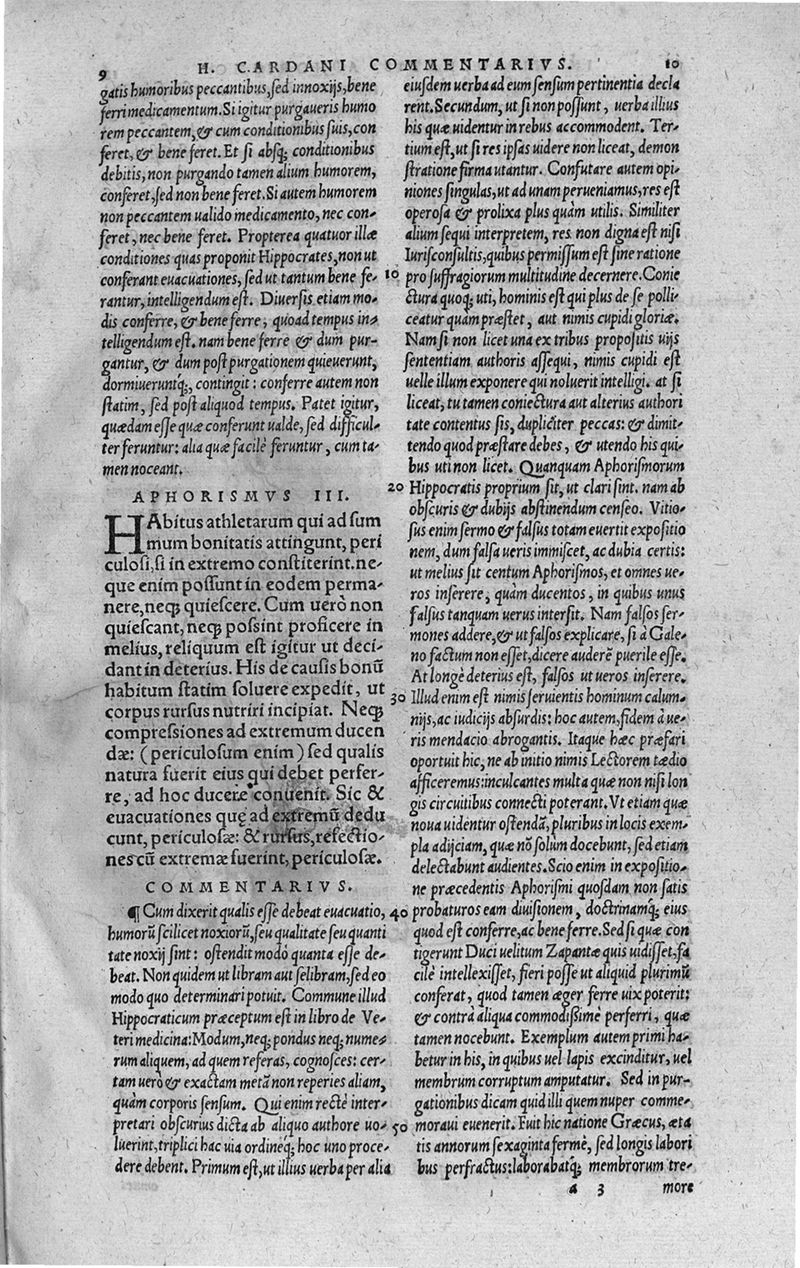 9 H. CARDANI COMMENTARIVS. 10
gatis humoribus peccantibus, sed innoxijs, bene
ferri medicamentum. Si igitur purgaueris humo
rem peccantem, & cum conditionibus suis, con
feret, & bene feret. Et si absq; conditionibus
debitis, non purgando tamen alium humorem,
conferet, sed non bene feret. Si autem humorem
non peccantem ualido medicamento, nec con-
feret, nec bene feret. Propterea quatuor illæ
conditiones quas proponit Hippocrates, non ut
conferant euacuationes, sed ut tantum bene fe-
rantur, intelligendum est. Diuersis etiam mo-
dis conferre, & bene ferre, quoad tempus in-
telligendum est. nam bene ferre & dum pur-
gantur, & dum post purgationem quieuerunt,
dormiuerintq;, contingit: conferre autem non
statim, sed post aliquod tempus. Patet igitur,
quædam esse quæ conferunt ualde, sed difficul-
ter feruntur: alia quæ facilè feruntur, cum ta-
men noceant.
APHORISMVS III.
HAbitus athletarum qui ad sum
mum bonitatis attingunt, peri
culosi, si in extremo constiterint. ne-
que enim possunt in eodem perma-
nere, neq; quiescere. Cum uerò non
quiescant, neq; possint proficere in
melius, reliquum est igitur ut deci-
dant in deterius. His de causis bonũ
habitum statim soluere expedit, ut
corpus rursus nutriri incipiat. Neq;
compressiones ad extremum ducen
dæ: (periculosum enim) sed qualis
natura fuerit eius qui debet perfer-
re, ad hoc ducere conuenit. Sic &
euacuationes quę ad extremũ dedu
cunt, periculosæ: & rursus, refectio-
nes cũ extremæ fuerint, periculosæ.
COMMENTARIVS.
¶ Cum dixerit qualis esse debeat euacuatio,
humorũ scilicet noxiorũ, seu qualitate seu quanti
tate noxij sint: ostendit modò quanta esse de-
beat. Non quidem ut libram aut selibram, sed eo
modo quo determinari potuit. Commune illud
Hippocraticum præceptum est in libro de Ve-
teri medicina: Modum, neq; pondus neq; nume-
rum aliquem, ad quem referas, cognosces: cer-
tam uerò & exactam metã non reperies aliam,
quàm corporis sensum. Qui enim rectè inter-
pretari obscurius dicta ab aliquo authore uo-
luerint, triplici hac uia ordineq; hoc uno proce-
dere debent. Primum est, ut illius uerba per alia
eiusdem uerba ad eum sensum pertinentia decla
rent. Secundum, ut si non possunt, uerba illius
his quæ uidentur in rebus accommodent. Ter-
tium est, ut si res ipsas uidere non liceat, demon
stratione firma utantur. Confutare autem opi-
niones singulas, ut ad unam perueniamus, res est
operosa & prolixa plus quàm utilis. Similiter
alium sequi interpretem, res non digna est nisi
Iurisconsultis, quibus permissum est sine ratione
10 pro suffragiorum multitudine decernere. Conie
ctura quoq; uti, hominis est qui plus de se polli-
ceatur quàm præstet, aut nimis cupidi gloriæ.
Nam si non licet una ex tribus propositis uijs
sententiam authoris assequi, nimis cupidi est
uelle illum exponere qui noluerit intelligi. at si
liceat, tu tamen coniectura aut alterius authori
tate contentus sis, dupliciter peccas: & dimit-
tendo quod præstare debes, & utendo his qui-
bus uti non licet. Quanquam Aphorismorum
20 Hippocratis proprium sit, ut clari sint. nam ab
obscuris & dubijs abstinendum censeo. Vitio-
sus enim sermo & falsus totam euertit expositio
nem, dum falsa ueris immiscet, ac dubia certis:
ut melius sit centum Aphorismos, et omnes ue-
ros inserere, quàm ducentos, in quibus unus
falsus tanquam uerus intersit. Nam falsos ser-
mones addere, & ut falsos explicare, si à Gale-
no factum non esset, dicere auderẽ puerile esse.
At longè deterius est, falsos ut ueros inserere.
30 Illud enim est nimis seruientis hominum calum-
nijs, ac iudicijs absurdis: hoc autem, fidem à ue-
ris mendacio abrogantis. Itaque hæc præfari
oportuit hic, ne ab initio nimis Lectorem tædio
afficeremus: inculcantes multa quæ non nisi lon
gis circuitibus connecti poterant. Vt etiam quæ
noua uidentur ostendã, pluribus in locis exem-
pla adijciam, quæ nõ solum docebunt, sed etiam
delectabunt audientes. Scio enim in expositio-
ne præcedentis Aphorismi quosdam non satis
40 probaturos eam diuisionem, doctrinamq; eius
quod est conferre, ac bene ferre. Sed si quæ con
tigerunt Duci uelitum Zapantæ quis uidisset, fa
cilè intellexisset, fieri posse ut aliquid plurimũ
conferat, quod tamen æger ferre uix poterit:
& contrà aliqua commodißimè perferri, quæ
tamen nocebunt. Exemplum autem primi ha-
betur in his, in quibus uel lapis exscinditur, uel
membrum corruptum amputatur. Sed in pur-
gationibus dicam quid illi quem nuper comme-
50 moraui euenerit. Fuit hic natione Græcus, æta
tis annorum sexaginta fermè, sed longis labori
bus perfractus: laborabatq; membrorum tre-
a 3 more